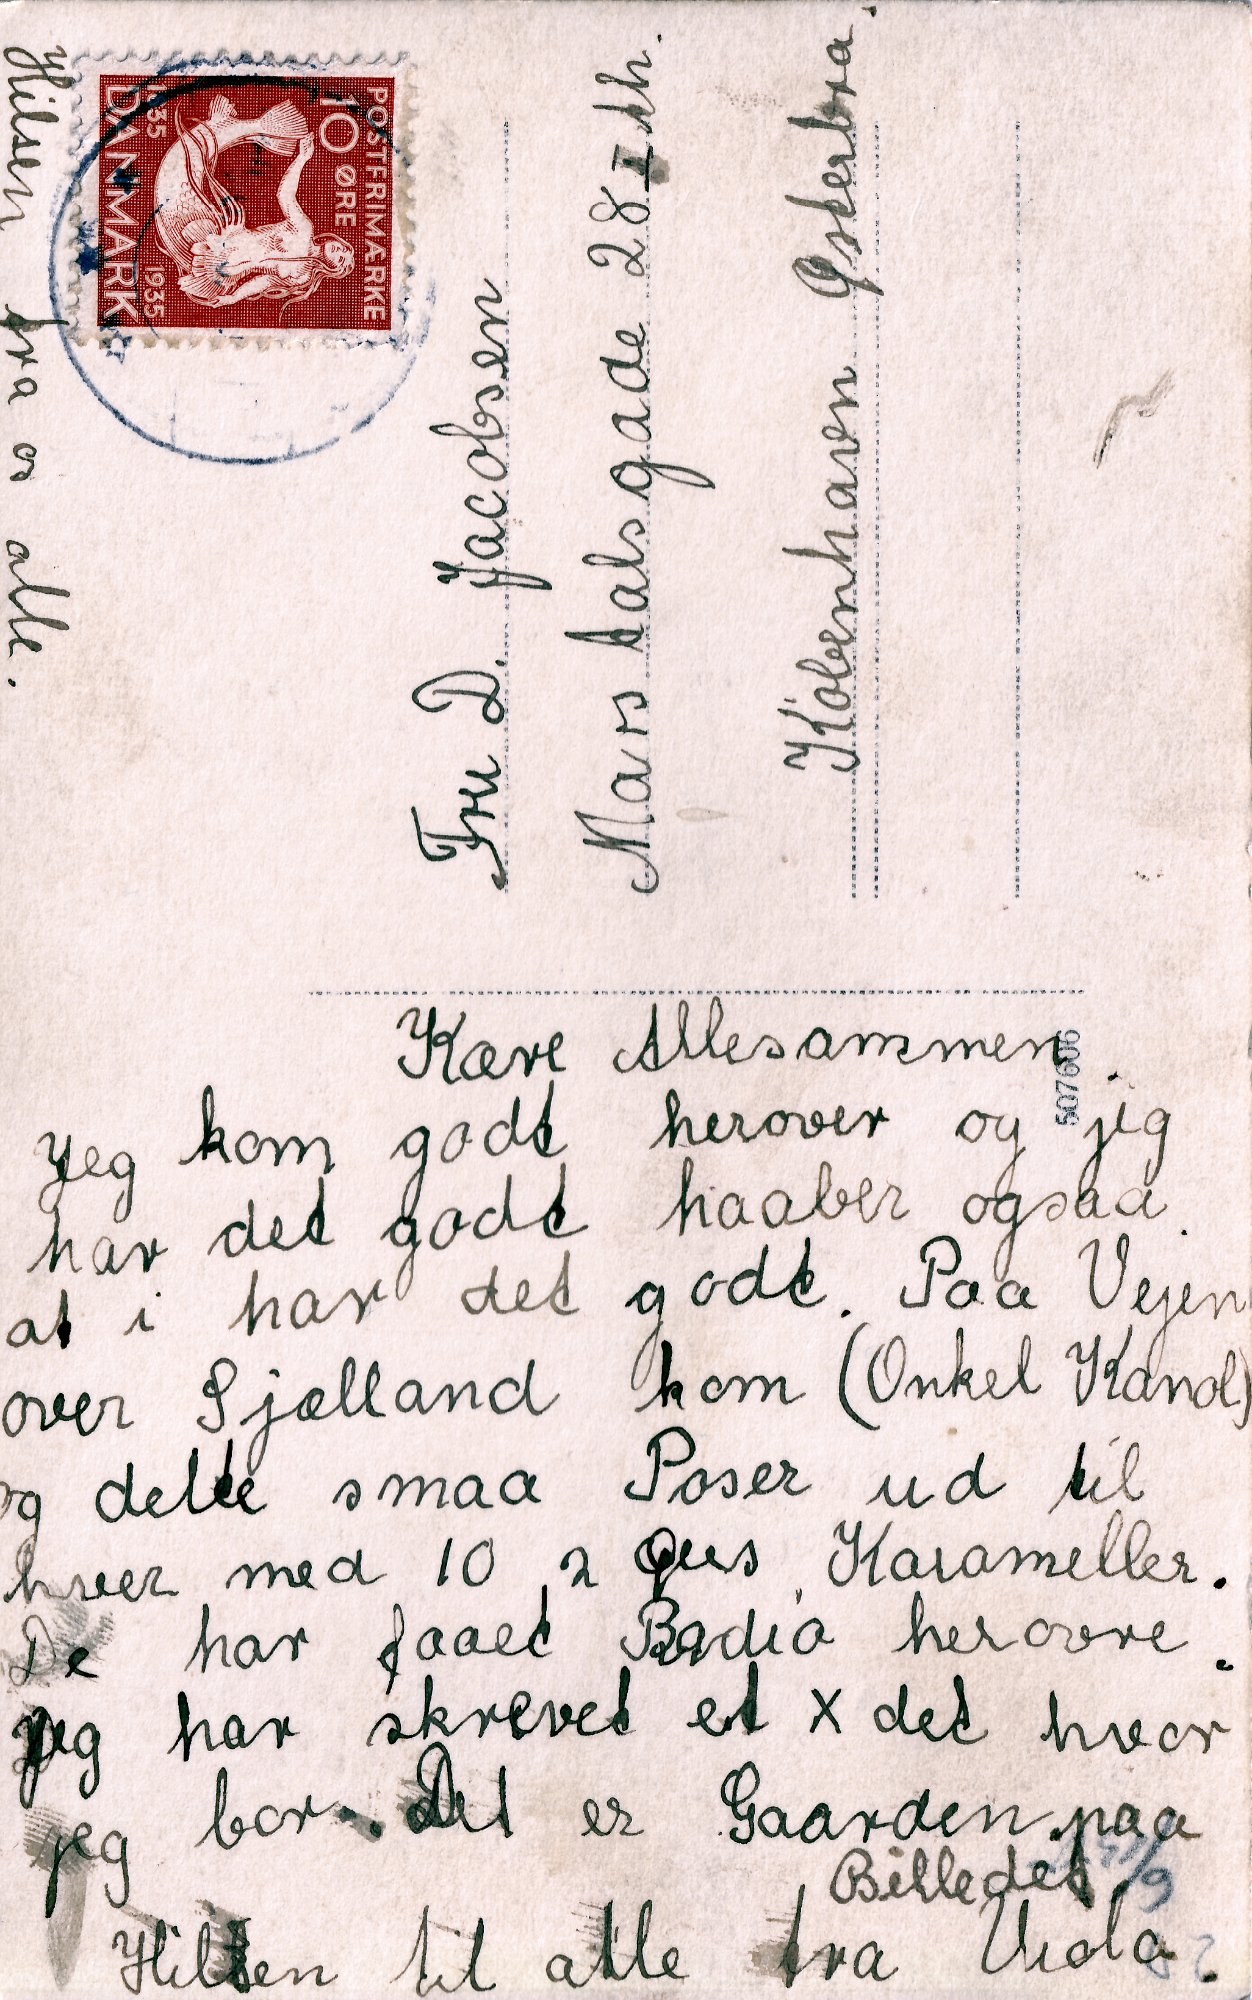 Hilsen fra os alle.
POSTFRIMÆRKE
10 ØRE
1835 1935
DANMARK
Fru D. Jacobsen
Marstalsgade 28 I th.
København Østerbro.
507606
Kære Allesammen.
Jeg kom godt herover og jeg
har det godt haaber ogsaa
at i har det godt. Paa Vejen
over Sjælland kom (Onkel Karol)
og delte smaa Poser ud til
hver med 10 2 Øres Karameller.
De har faaet Radio herovre.
Jeg har skrevet et X det hvor
jeg bor. Det er Gaarden paa
Billedet
Hilsen til alle fra Viola.